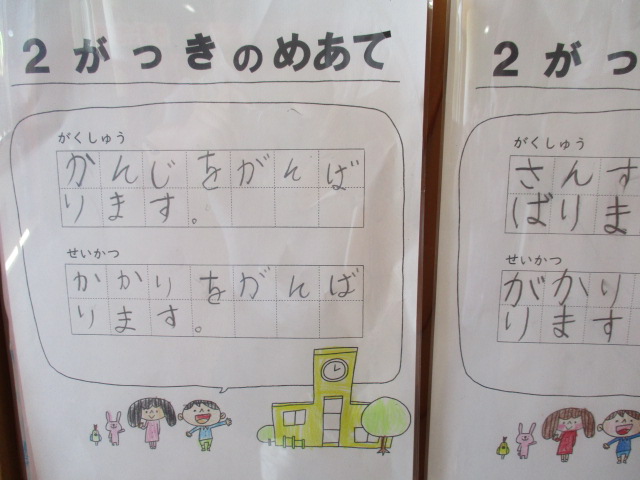 2がっきのめあて
がくしゅう
かんじをがんば
ります。
せいかつ
かかりをがんば
ります。
2がっ
がくしゅう
さんす
ばりま
せいかつ
がかり
ります